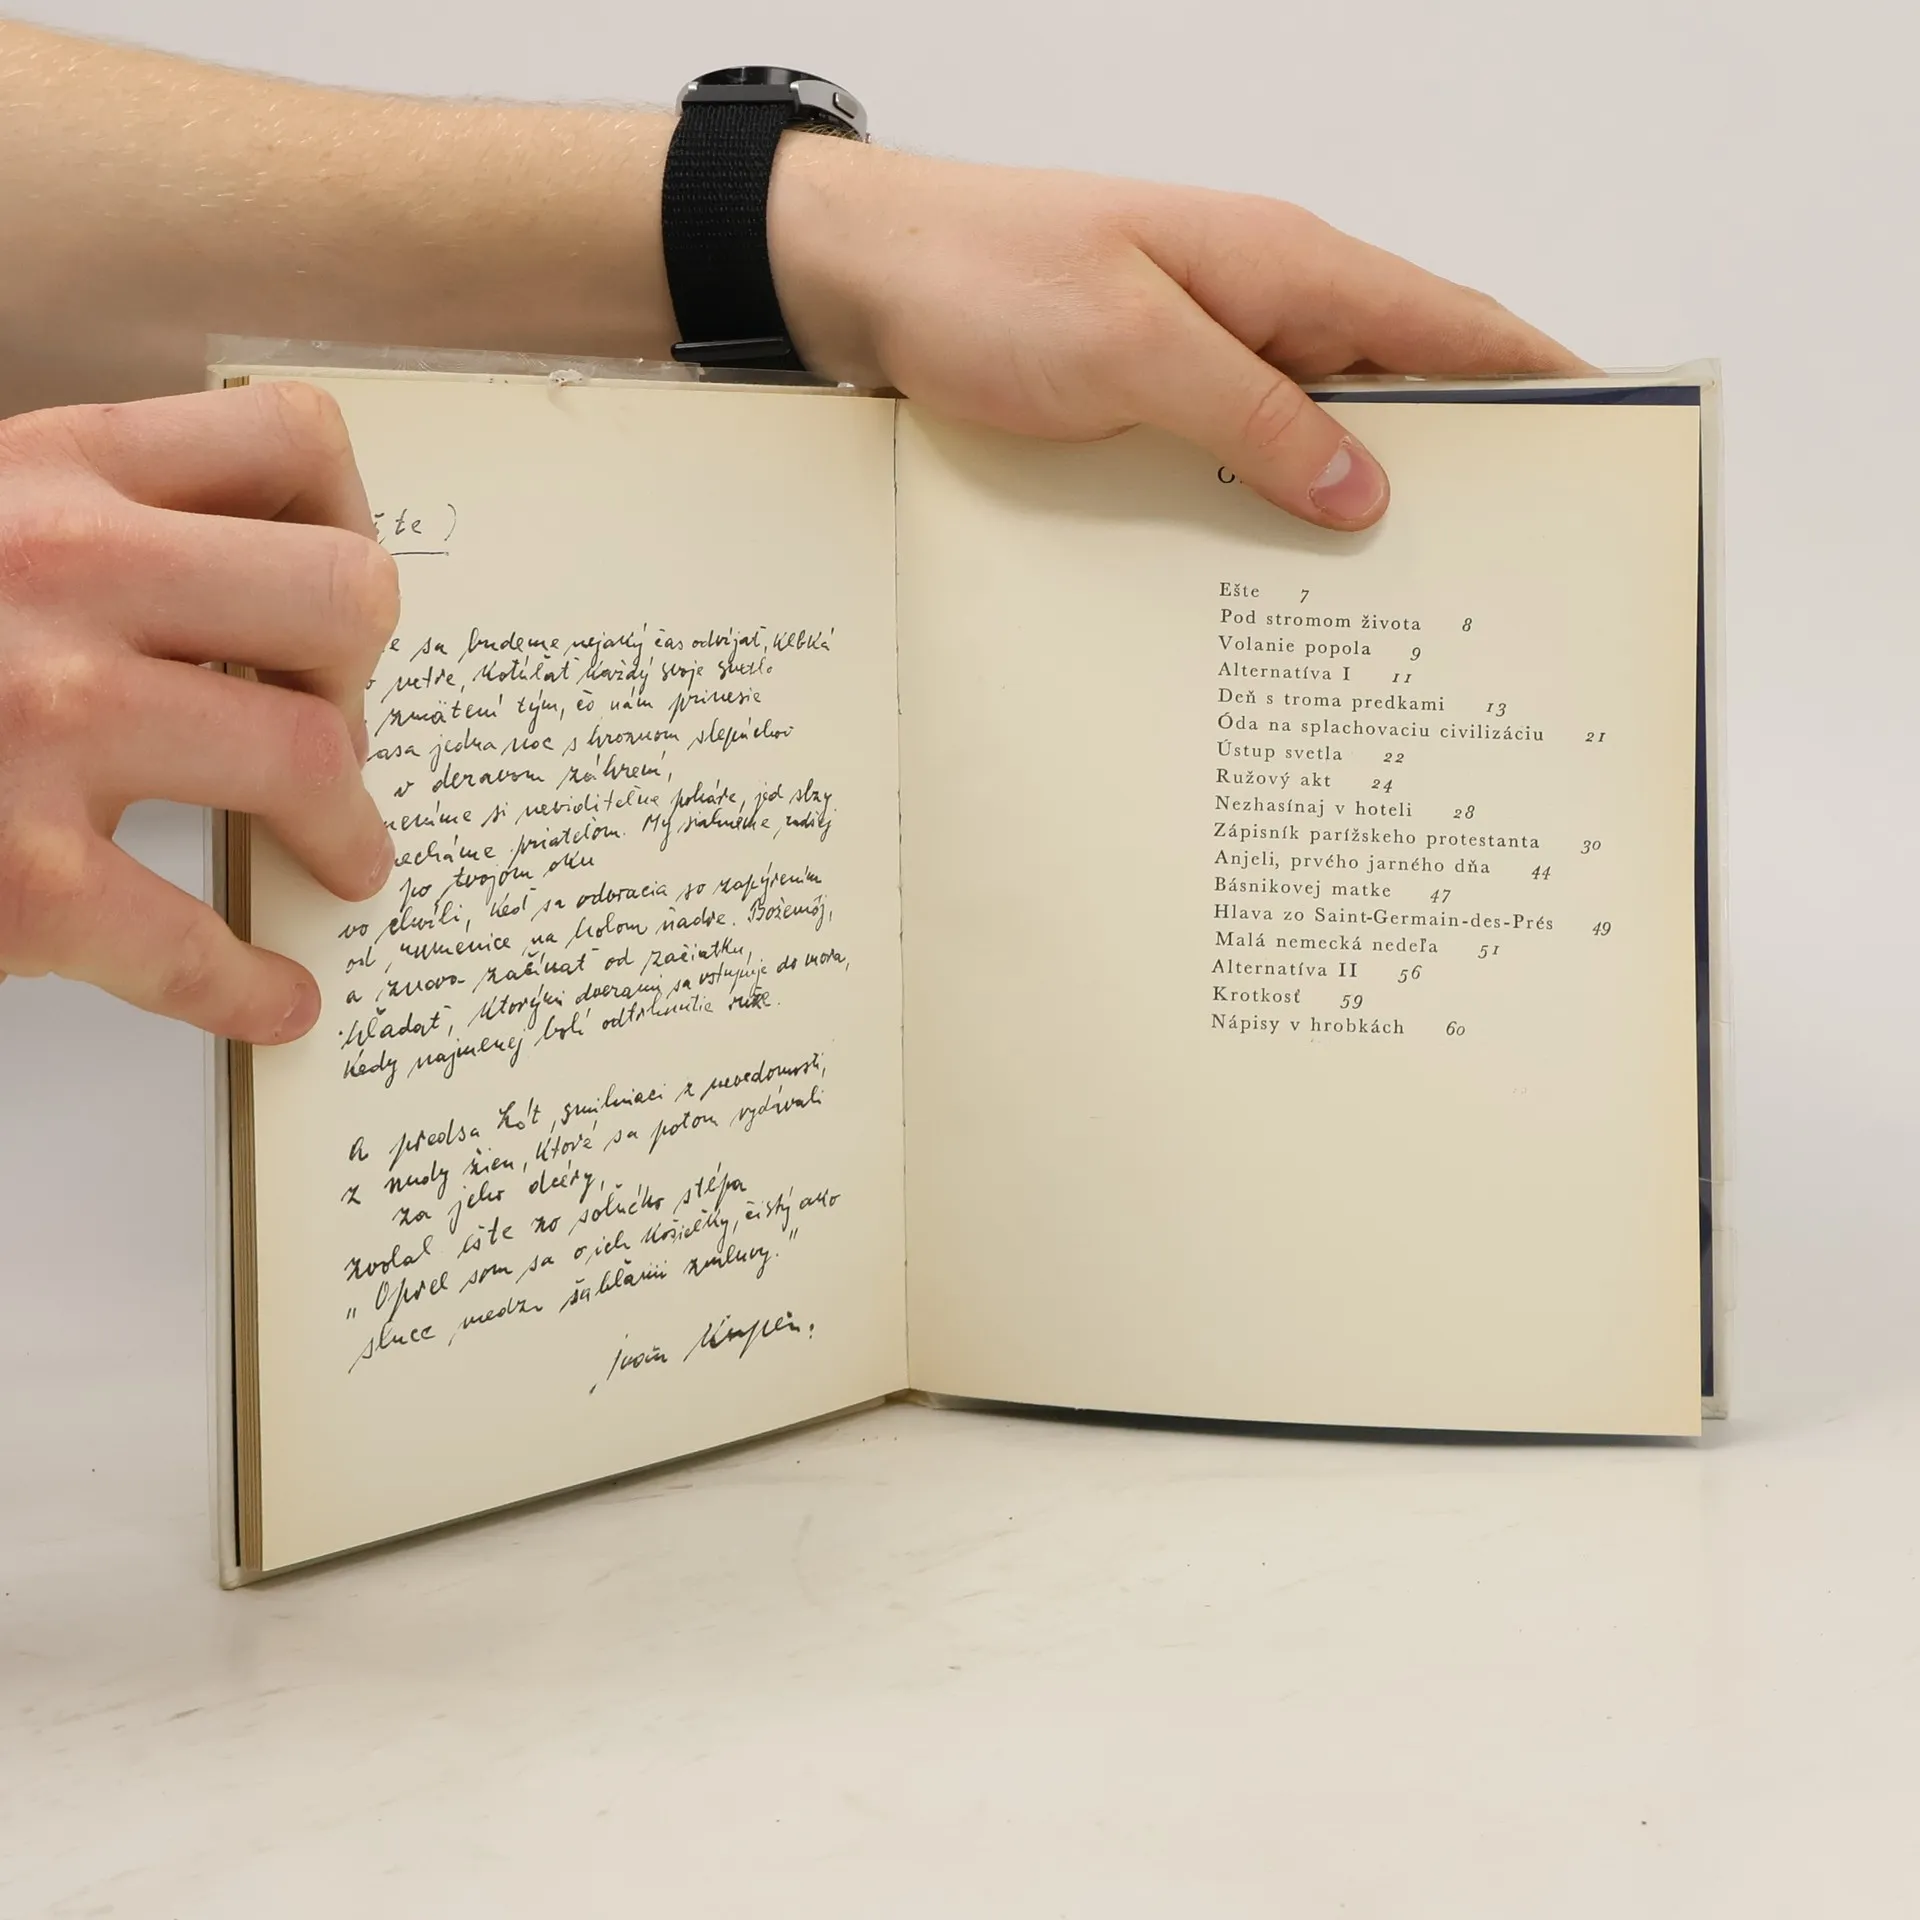 te )
sa budeme nejaký čas odvíjať, klbká
vetre, kotúľať každý svoje svetlo
zmätení tým, čo nám prinesie
jedna noc s hroznom slepúchov
v deravom záhrení,
si neviditeľné poháre, jed slzy
priateľom. My siahneme radšej
po tvojom oku
vo chvíli, keď sa odvracia so zapýrením
od nymfenice na holom ňadre. Božemôj,
a znova začínať od začiatku,
hľadať, ktorými dverami sa vstupuje do mora,
kedy najmenej bolí odtrhnutie ruže.
A predsa Lót, smilniaci z nevedomosti,
z nudy žien, ktoré sa potom vydávali
za jeho dcéry,
zvolal ešte zo soľného stĺpa
„Oprel som sa o ich košieľky, čistý ako
slnce medzi šabľami zmluvy."
Ivan Kupec
Ešte 7
Pod stromom života 8
Volanie popola 9
Alternatíva I 11
Deň s troma predkami 13
Óda na splachovaciu civilizáciu 21
Ústup svetla 22
Ružový akt 24
Nezhasínaj v hoteli 28
Zápisník parížskeho protestanta 30
Anjeli, prvého jarného dňa 44
Básnikovej matke 47
Hlava zo Saint-Germain-des-Prés 49
Malá nemecká nedeľa 51
Alternatíva II 56
Krotkosť 59
Nápisy v hrobkách 60